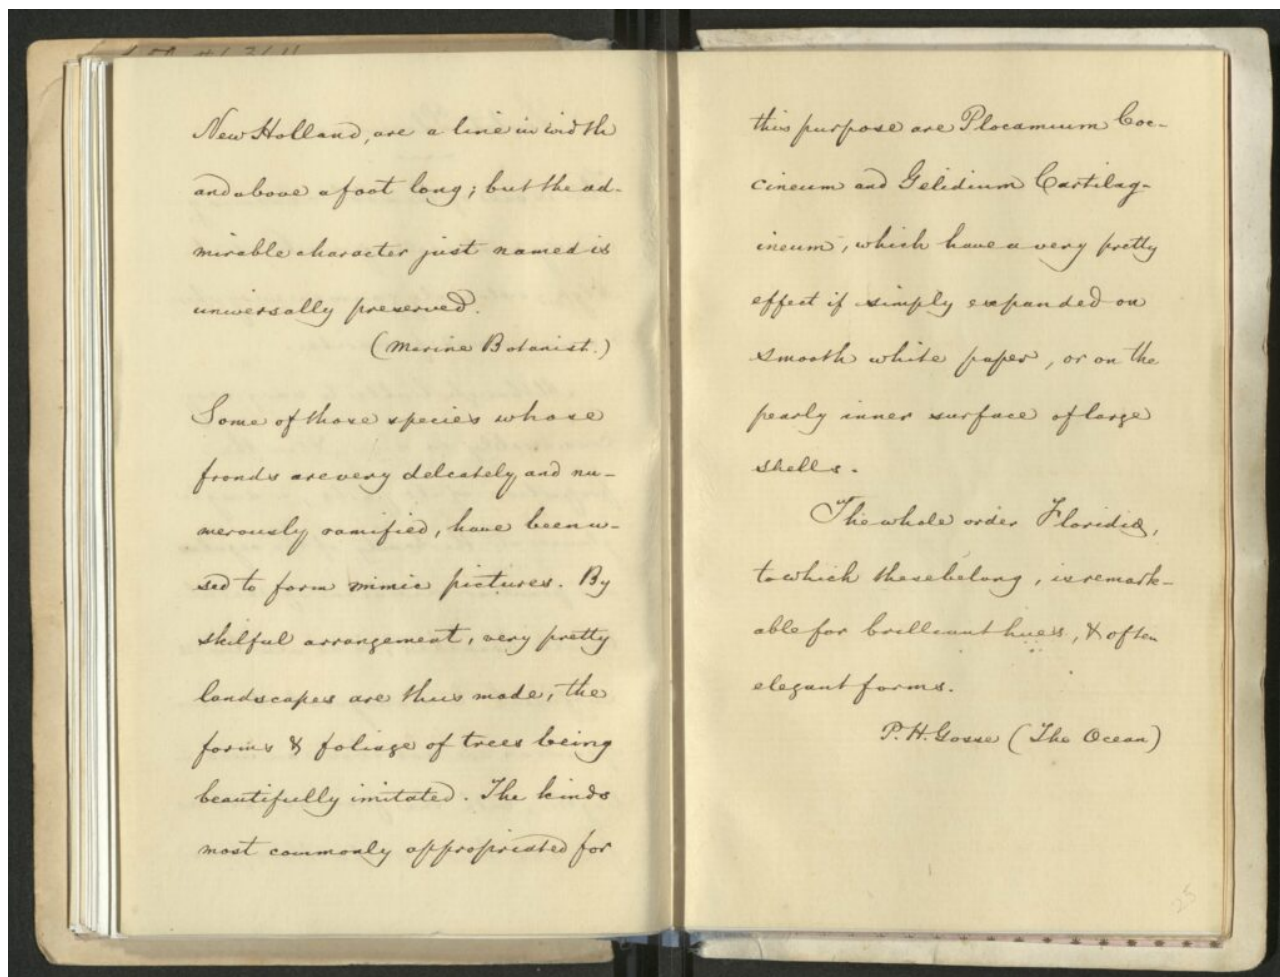 New Holland, are a line in width
and above a foot long; but the ad-
mirable character just named is
universally preserved.
(Marine Botanist.)
Some of those species whose
fronds are very delicately and nu-
merously ramified, have been u-
sed to form mimic pictures. By
skilful arrangement, very pretty
landscapes are thus made, the
forms & foliage of trees being
beautifully imitated. The kinds
most commonly appropriated for
this purpose are Plocamium Coc-
cineum and Gelidium Cartilag-
ineum, which have a very pretty
effect if simply expanded on
smooth white paper, or on the
pearly inner surface of large
shells.
The whole order Florideæ,
to which these belong, is remark-
able for brilliant hues, & often
elegant forms.
P. H. Gosse (The Ocean)
25